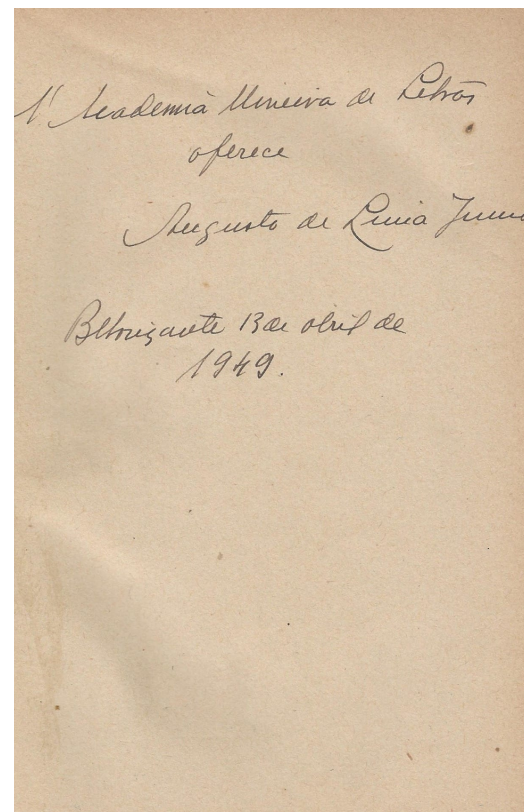 A' Academia Mineira de Letras
oferece
Augusto de Lima Junior
B Horizonte 13 de abril de
1949.